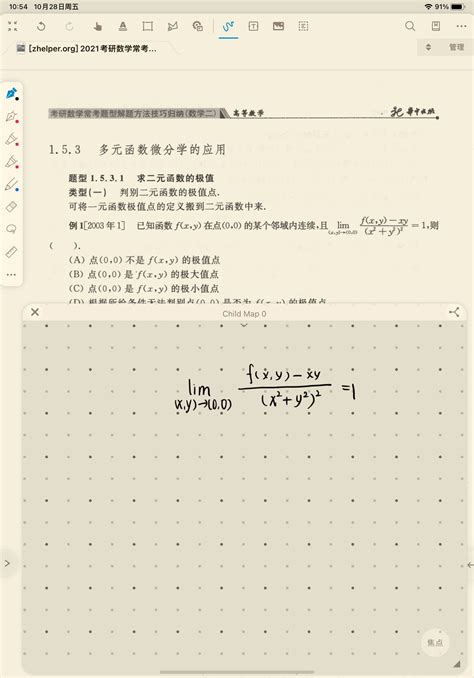 10:54 10月28日周五 91%
[zhelper.org] 2021考研数学常考... 管理
考研数学常考题型解题方法技巧归纳(数学二) 高等数学
1.5.3 多元函数微分学的应用
题型 1.5.3.1 求二元函数的极值
类型(一) 判别二元函数的极值点.
可将一元函数极值点的定义搬到二元函数中来.
例1[2003年1] 已知函数 f(x,y)在点(0,0)的某个邻域内连续,且 lim (x,y)→(0,0) (f(x,y)−xy)/(x²+y²)² =1,则
( ).
(A) 点(0,0)不是 f(x,y)的极值点
(B) 点(0,0)是 f(x,y)的极大值点
(C) 点(0,0)是 f(x,y)的极小值点
(D) 根据所给条件无法判别点(0,0)是否为 f(x,y)的极值点
Child Map 0
lim (x,y)→(0,0) (f(x,y)−xy)/(x²+y²)² =1
焦点